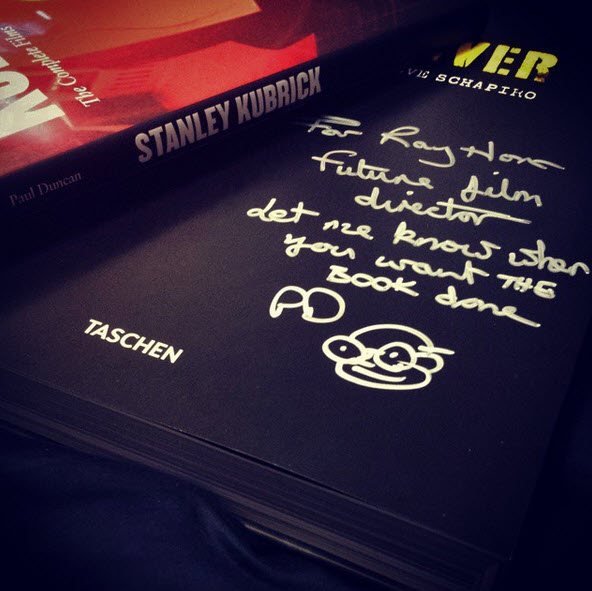 The Complete Films
STANLEY KUBRICK
Paul Duncan
VER
VE SCHAPIRO
For Ray
Future film
director
Let me know when
you want THE
BOOK done
PD
TASCHEN